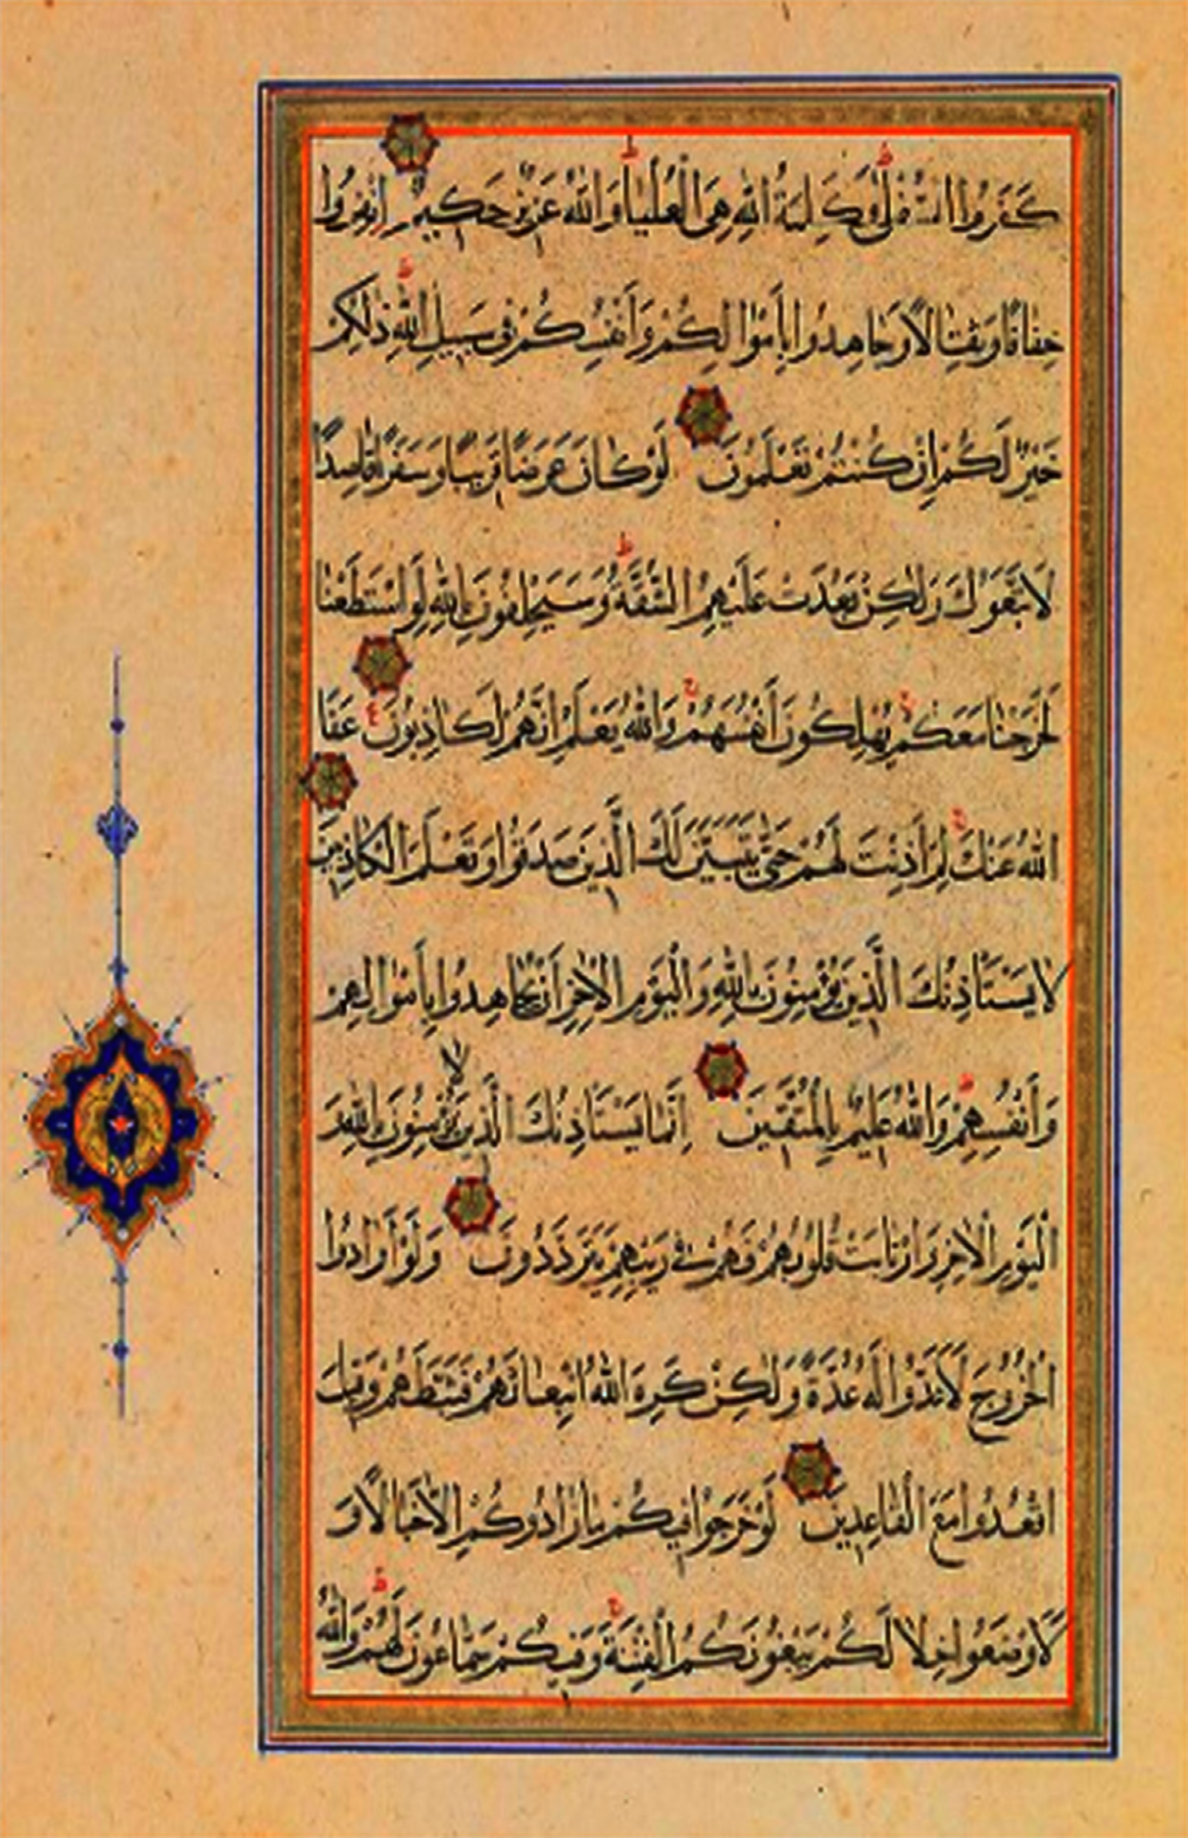 كَفَرُوا السُّفْلَىٰ وَكَلِمَةُ اللهِ هِيَ الْعُلْيَا وَاللهُ عَزِيزٌ حَكِيمٌ اِنْفِرُوا
خِفَافًا وَثِقَالًا وَجَاهِدُوا بِأَمْوَالِكُمْ وَأَنْفُسِكُمْ فِي سَبِيلِ اللهِ ذٰلِكُمْ
خَيْرٌ لَكُمْ إِنْ كُنْتُمْ تَعْلَمُونَ لَوْ كَانَ عَرَضًا قَرِيبًا وَسَفَرًا قَاصِدًا
لَاتَّبَعُوكَ وَلٰكِنْ بَعُدَتْ عَلَيْهِمُ الشُّقَّةُ وَسَيَحْلِفُونَ بِاللهِ لَوِ اسْتَطَعْنَا
لَخَرَجْنَا مَعَكُمْ يُهْلِكُونَ أَنْفُسَهُمْ وَاللهُ يَعْلَمُ إِنَّهُمْ لَكَاذِبُونَ عَفَا
اللهُ عَنْكَ لِمَ أَذِنْتَ لَهُمْ حَتَّىٰ يَتَبَيَّنَ لَكَ الَّذِينَ صَدَقُوا وَتَعْلَمَ الْكَاذِبِينَ
لَا يَسْتَأْذِنُكَ الَّذِينَ يُؤْمِنُونَ بِاللهِ وَالْيَوْمِ الْآخِرِ أَنْ يُجَاهِدُوا بِأَمْوَالِهِمْ
وَأَنْفُسِهِمْ وَاللهُ عَلِيمٌ بِالْمُتَّقِينَ إِنَّمَا يَسْتَأْذِنُكَ الَّذِينَ لَا يُؤْمِنُونَ بِاللهِ وَ
الْيَوْمِ الْآخِرِ وَارْتَابَتْ قُلُوبُهُمْ فَهُمْ فِي رَيْبِهِمْ يَتَرَدَّدُونَ وَلَوْ أَرَادُوا
الْخُرُوجَ لَأَعَدُّوا لَهُ عُدَّةً وَلٰكِنْ كَرِهَ اللهُ انْبِعَاثَهُمْ فَثَبَّطَهُمْ وَقِيلَ
اقْعُدُوا مَعَ الْقَاعِدِينَ لَوْ خَرَجُوا فِيكُمْ مَا زَادُوكُمْ إِلَّا خَبَالًا وَ
لَأَوْضَعُوا خِلَالَكُمْ يَبْغُونَكُمُ الْفِتْنَةَ وَفِيكُمْ سَمَّاعُونَ لَهُمْ وَاللهُ